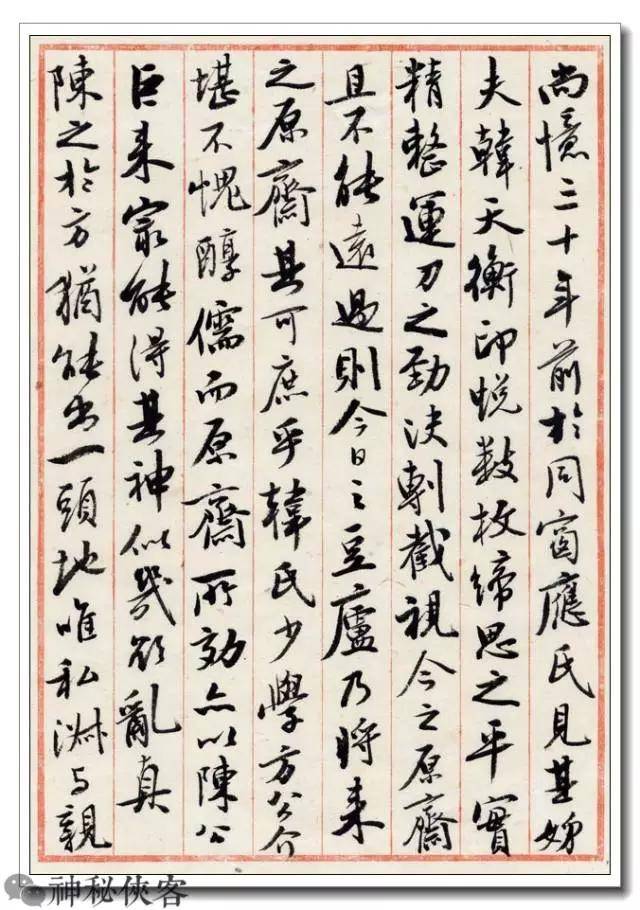 尚憶三十年前於同窗應氏見其姊
夫韓天衡印蜕數枚締思之平實
精整運刀之勁決剸截視今之原齋
且不能遠過則今日之豆廬乃將来
之原齋其可庶乎韓氏少學方公介
堪不愧醇儒而原齋所効亦以陳公
巨来宗能得其神似幾欲亂真
陳之於方猶能出一頭地唯私淑与親
神秘俠客